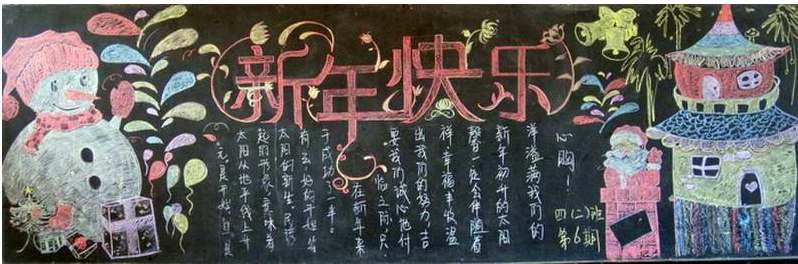 新年快乐
元是开始,旦是
太阳从地平线上升
起的 象,意味着
太阳的新生。民谚
有云:好的开始等
于成功了一半。
在新年来
临之前,只
要我们诚心地付
出我们的努力,吉
祥幸福丰收温
馨 一定会伴随着
新年初升的太阳
洋溢满我们的
心胸!
四(二)班
第6期